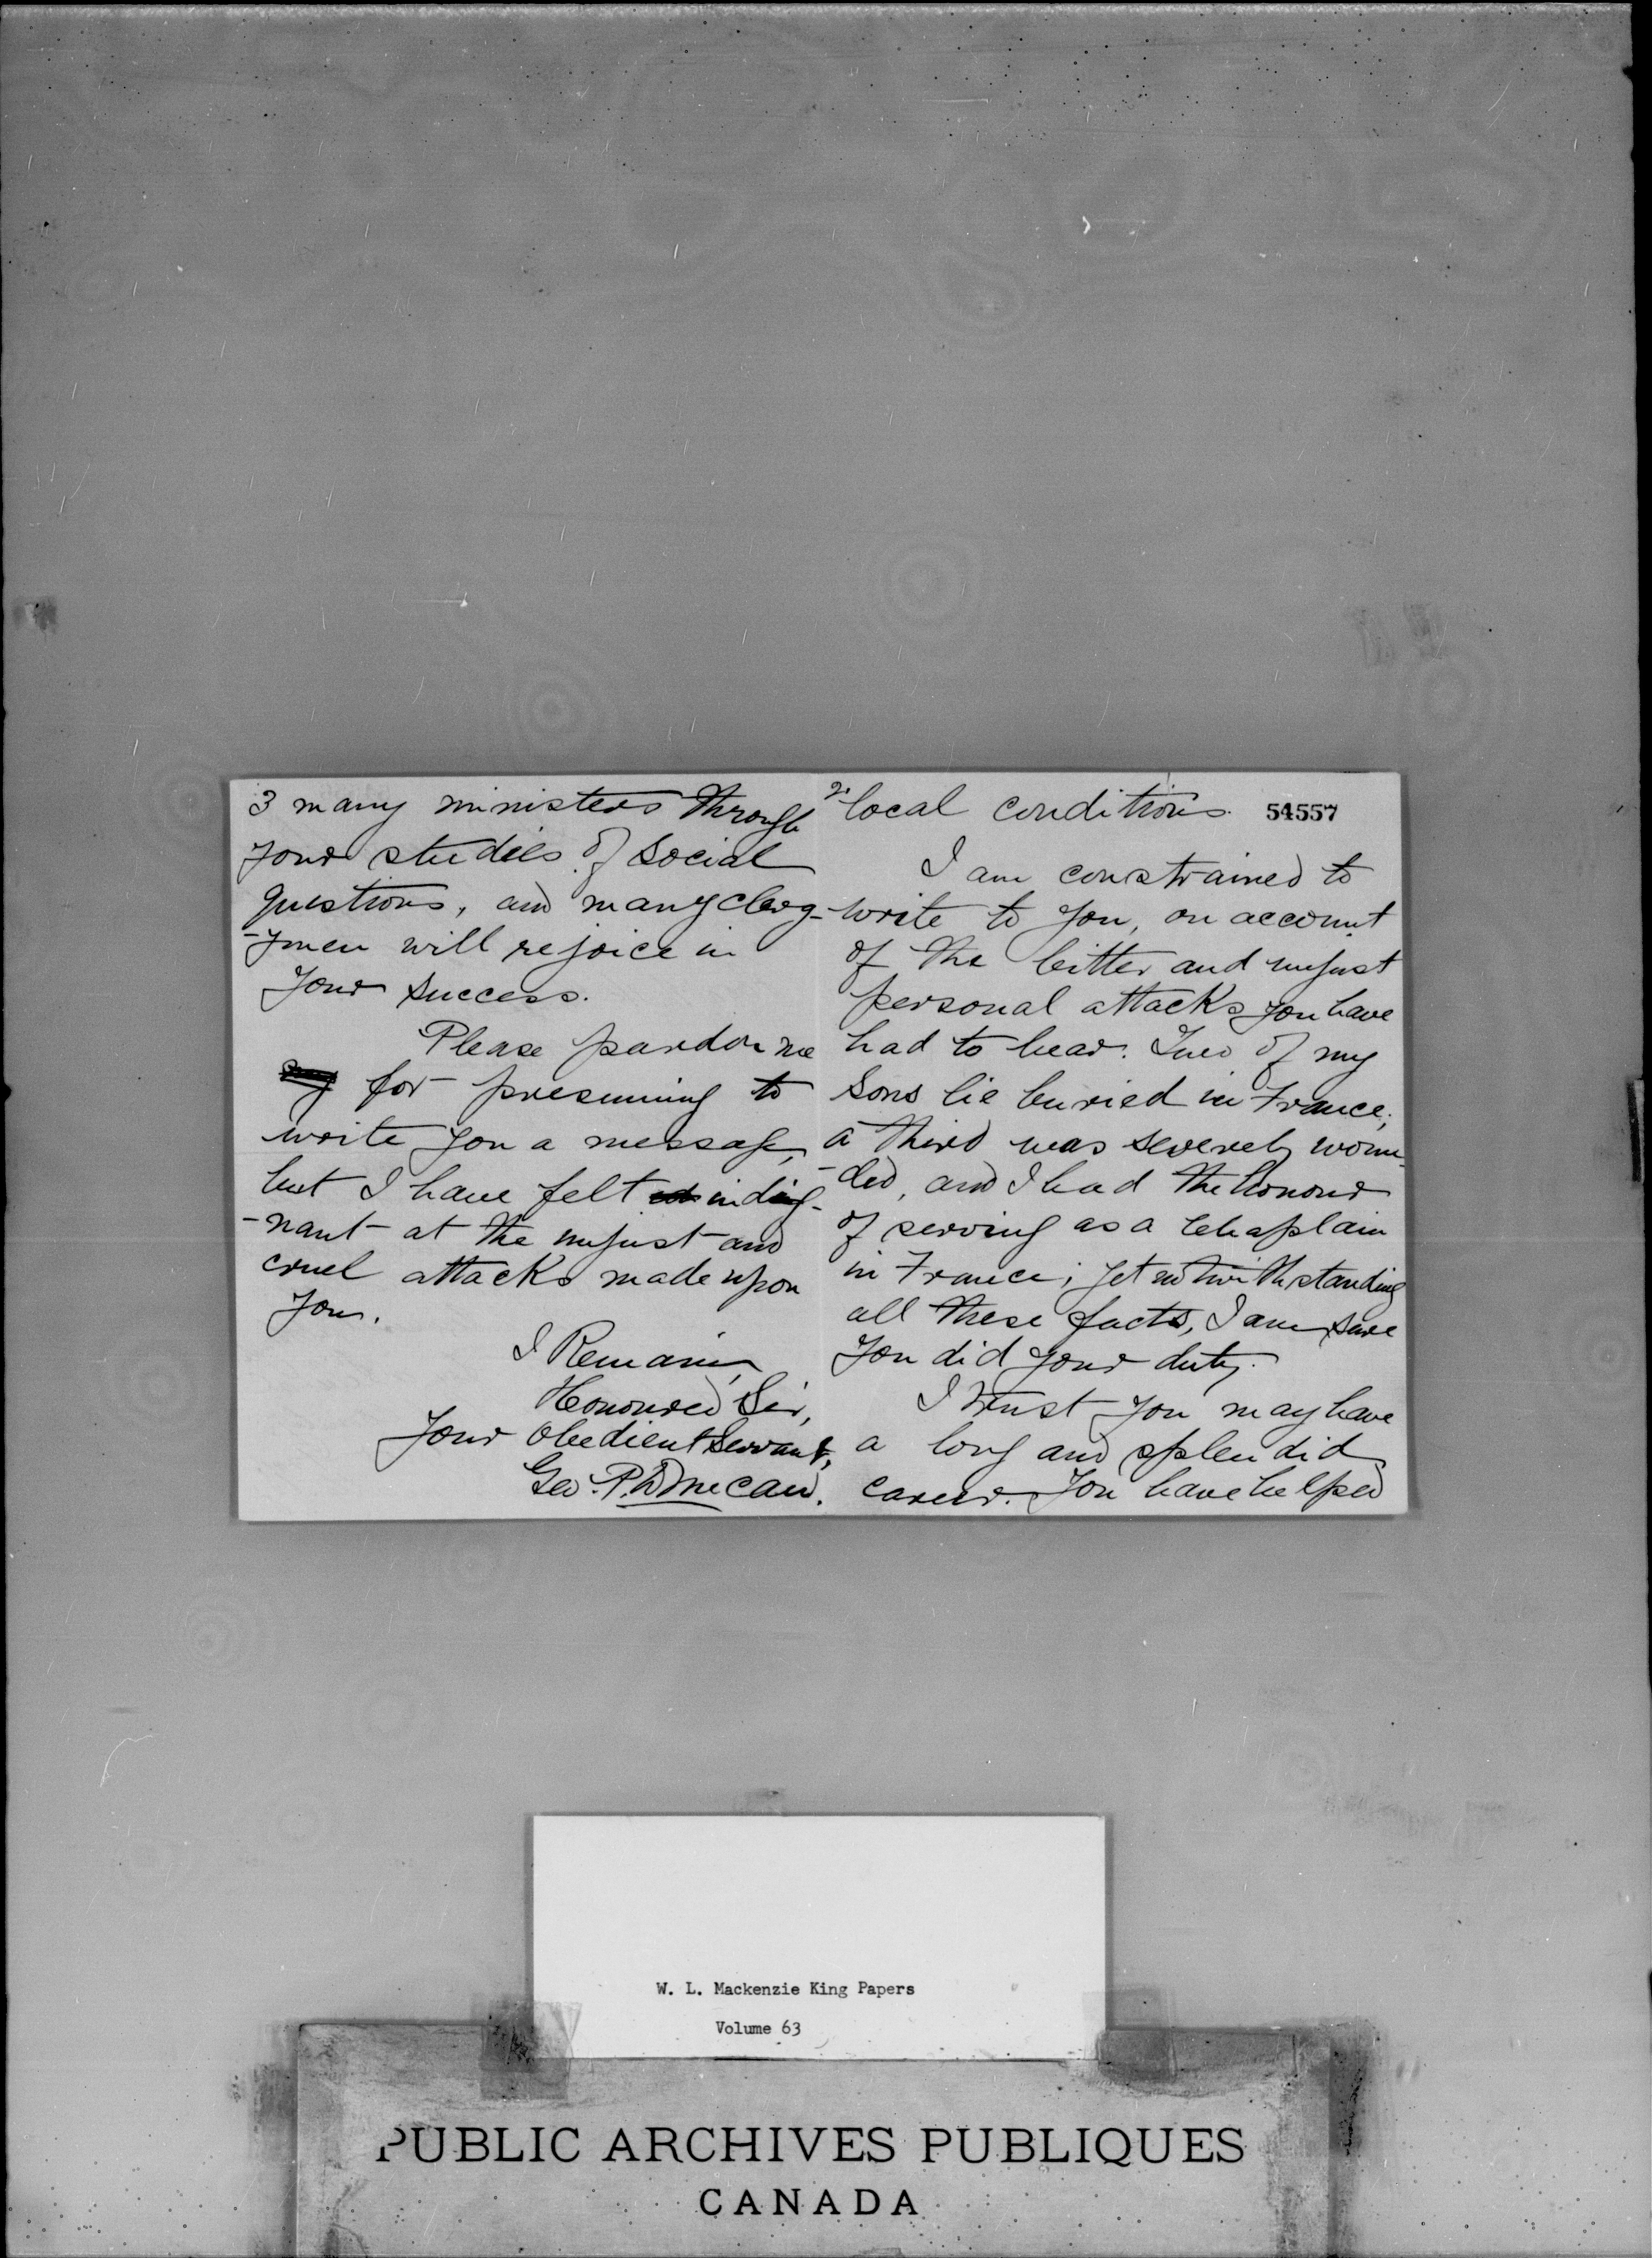 2. local conditions. 54557
I am constrained to
write to you, on account
of the bitter and unjust
personal attacks you have
had to bear. Two of my
sons lie buried in France;
a third was severely woun-
-ded, and I had the honour
of serving as a Chaplain
in France; yet notwithstanding
all these facts, I am sure
you did your duty.
I trust you may have
a long and splendid
career. You have helped
3 many ministers through
your studies of social
questions, and many clerg-
-ymen will rejoice in
your success.
Please pardon me
for presuming to
write you a message,
but I have felt indig-
-nant at the unjust and
cruel attacks made upon
you.
I Remain,
Honoured Sir,
Your Obedient Servant,
Geo. P.
W. L. Mackenzie King Papers
Volume 63
PUBLIC ARCHIVES PUBLIQUES
CANADA